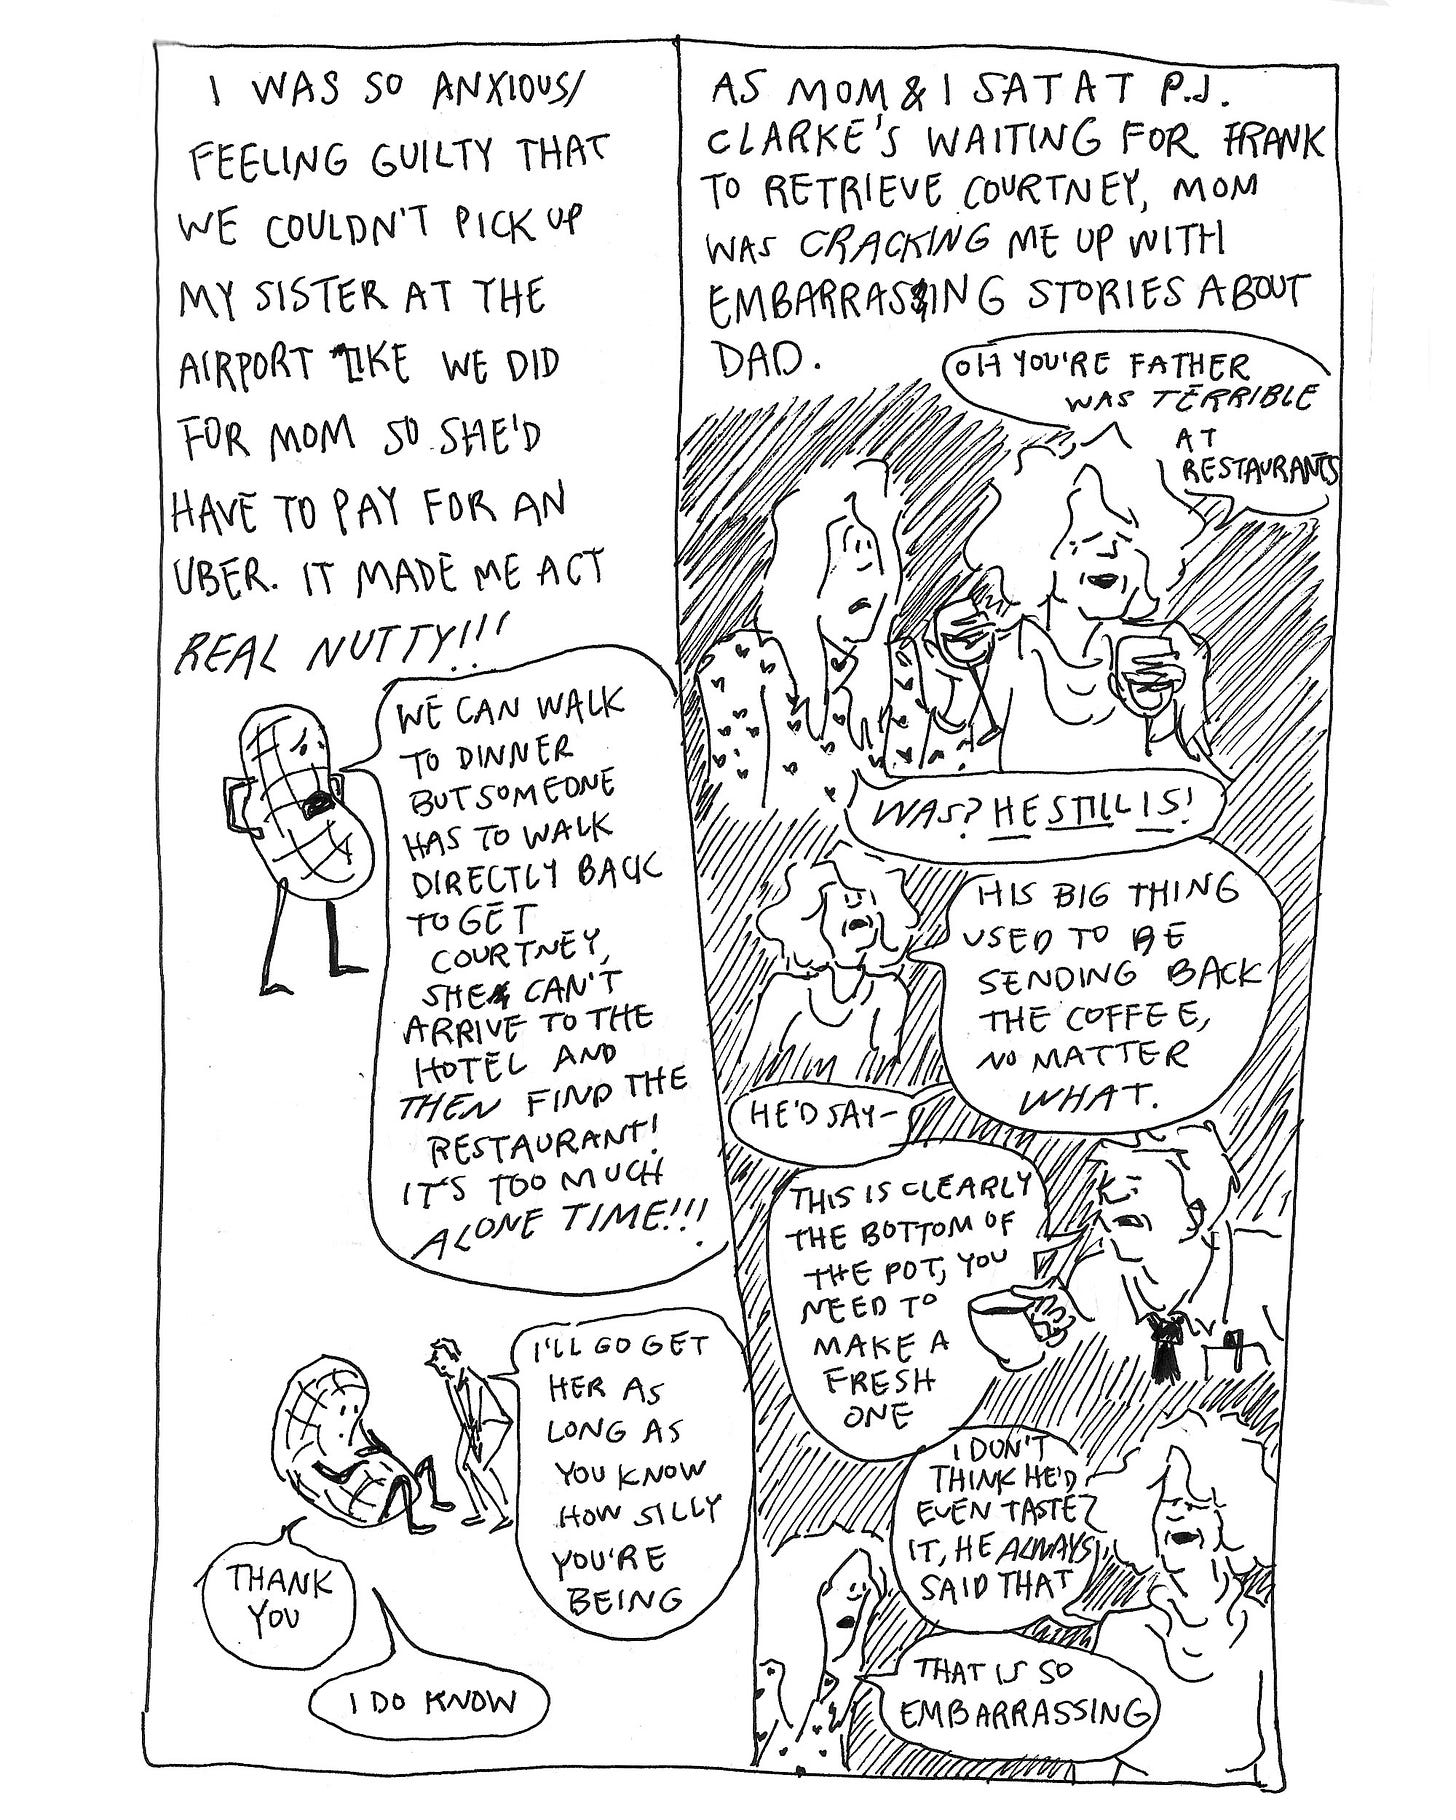 I WAS SO ANXIOUS/
FEELING GUILTY THAT
WE COULDN'T PICK UP
MY SISTER AT THE
AIRPORT LIKE WE DID
FOR MOM SO SHE'D
HAVE TO PAY FOR AN
UBER. IT MADE ME ACT
REAL NUTTY!!!
WE CAN WALK
TO DINNER
BUT SOMEONE
HAS TO WALK
DIRECTLY BACK
TO GET
COURTNEY,
SHE CAN'T
ARRIVE TO THE
HOTEL AND
THEN FIND THE
RESTAURANT!
IT'S TOO MUCH
ALONE TIME!!!
I'LL GO GET
HER AS
LONG AS
YOU KNOW
HOW SILLY
YOU'RE
BEING
THANK
YOU
I DO KNOW
AS MOM & I SAT AT P.J.
CLARKE'S WAITING FOR FRANK
TO RETRIEVE COURTNEY, MOM
WAS CRACKING ME UP WITH
EMBARRASSING STORIES ABOUT
DAD.
OH YOU'RE FATHER
WAS TERRIBLE
AT
RESTAURANTS
WAS? HE STILL IS!
HIS BIG THING
USED TO BE
SENDING BACK
THE COFFEE,
NO MATTER
WHAT.
HE'D SAY-
THIS IS CLEARLY
THE BOTTOM OF
THE POT, YOU
NEED TO
MAKE A
FRESH
ONE
I DON'T
THINK HE'D
EVEN TASTE
IT, HE ALWAYS
SAID THAT
THAT IS SO
EMBARRASSING